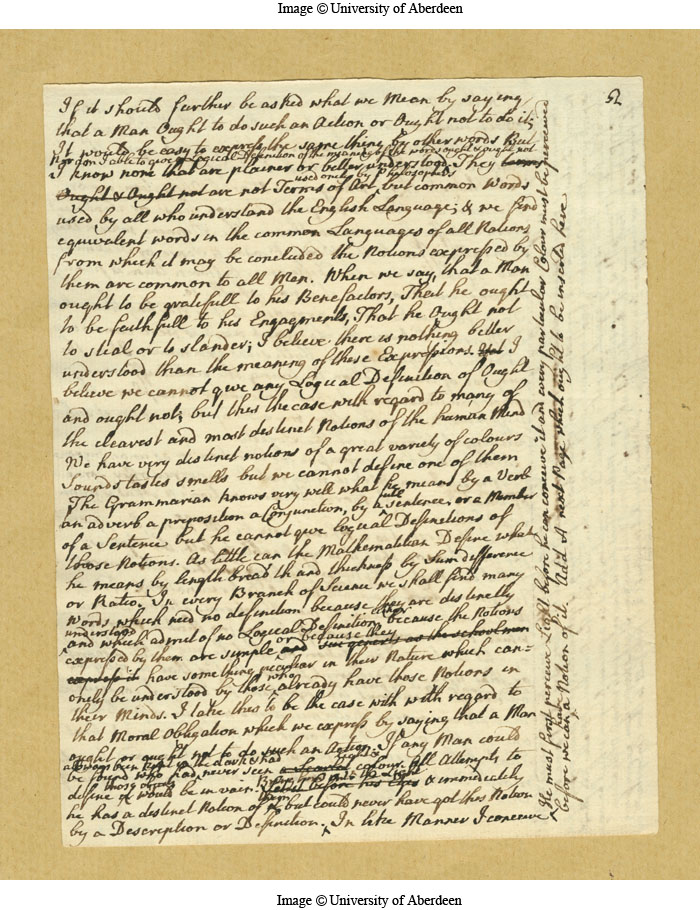 Image © University of Aberdeen
52
If it should further be asked what we Mean by saying
that a Man Ought to do such an Action or Ought not to do it;
It would be easy to express the same thing by other words But
Nor am I able to give a Logical Definition of the meaning of the words ought & ought not
I know none that are plainer or better understood. They terms
used only by Philosophers
Ought & Ought not are not Terms of Art, but common Words
used by all who understand the English Language; & we find
equivalent words in the common Languages of all Nations
from which it may be concluded the Notions expressed by
them are common to all Men. When we say, that a Man
ought to be gratefull to his Benefactors, That he ought
to be faithfull to his Engagements, That he Ought not
to steal or to slander; I believe there is nothing better
understood than the meaning of these Expressions. Yet I
believe we cannot give any Logical Definition of Ought
and ought not; but this the case with regard to many of
the clearest and most distinct Notions of the human Mind
We have very distinct notions of a great variety of colours
Sounds tastes smells but we cannot define one of them
The Grammarian knows very well what he means by a Verb
an adverb a preposition a Conjunction, by a full sentence, or a Member
of a Sentence but he cannot give Logical Definitions of
those Notions. As little can the Mathematician Define what
he means by length breadth and thickness by Sum difference
or Ratio. In every Branch of Science we shall find many
words which need no definition because they are distinctly
understood
and which admit of no Logical Definition either because the Notions
expressed by them are simple and or because they sui generis as the schoolmen
express it have something peculiar in their Nature which can-
onely be understood by those who already have those Notions in
their Minds. I take this to be the case with with regard to
that Moral Obligation which we express by saying that a Man
ought or ought not to do such an Action. If any Man could
allways been kept in the dark & had
be found who had never seen colour. All Attempts to
those objects
define it would be in vain. before his Eyes & immediately
he has a distinct Notion of them but could never have got this Notion
by a Description or Definition. In like Manner I conceive
He must first perceive Light before he can conceive it and every particular Colour must be perceived
before we can have a Notion of it. Add A next Page which ought to be inserted here
Image © University of Aberdeen